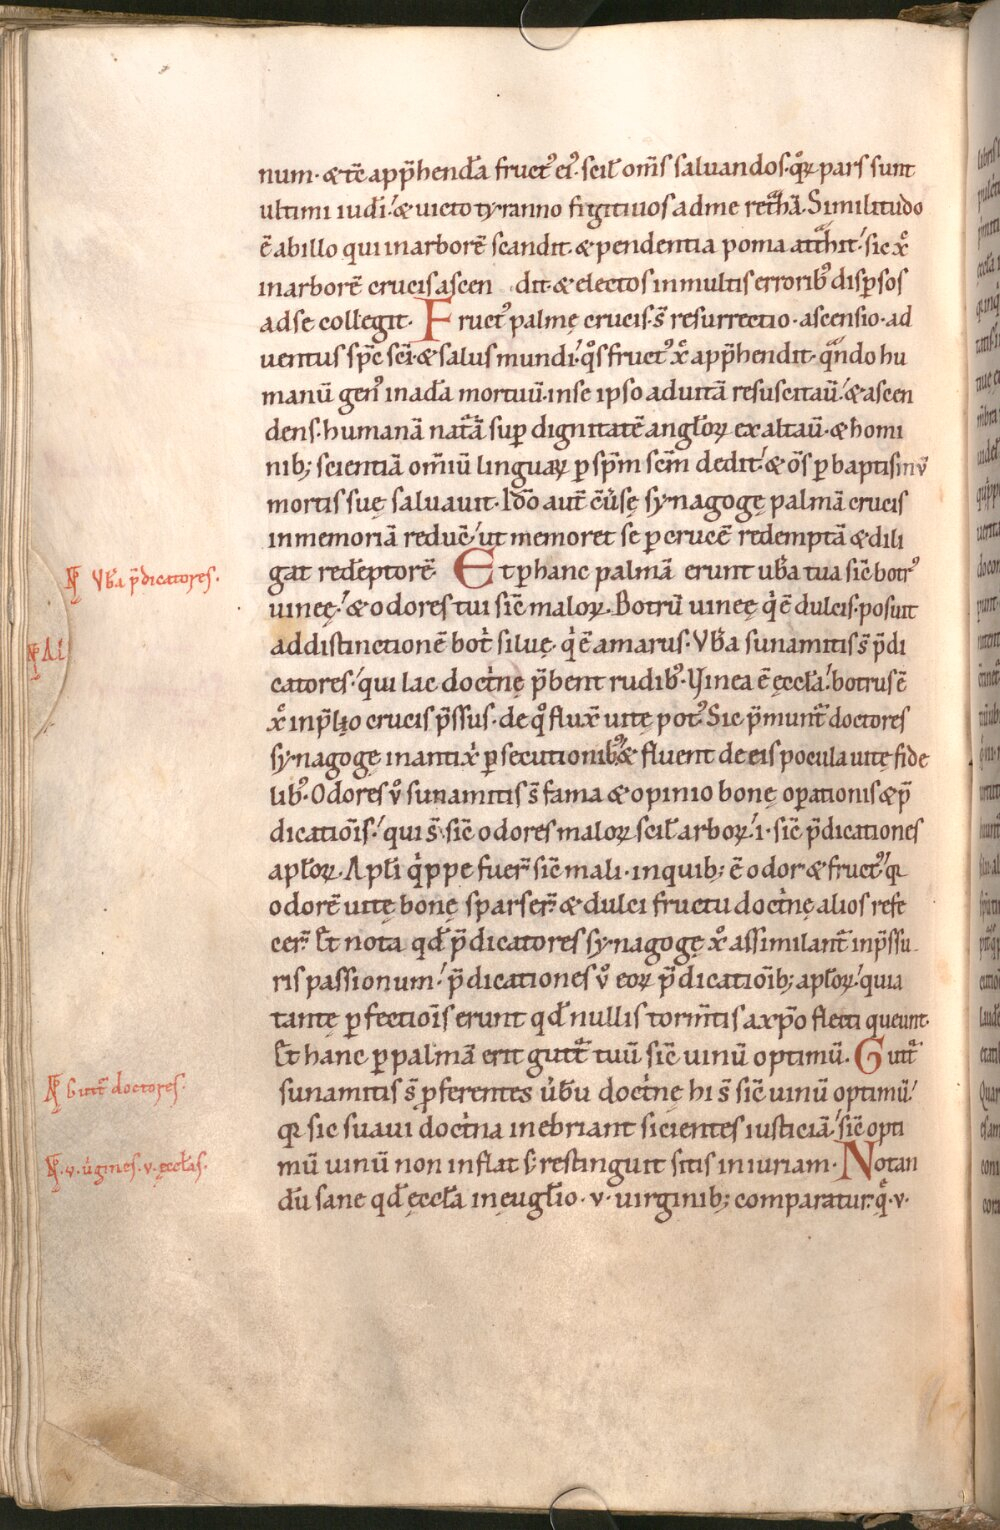 num· & te᷒ app̄henda᷒ fruct᷒ ei᷒· scil̄ om̄s saluandos· q̊ꝝ pars sunt
ultimi iudi᷒· & uicto tyranno fugitiuos ad me ret᷒ha᷒· Similitudo
ē ab illo qui in arborē scandit· & pendentia poma att᷒hit· sic xͦ
in arborē crucis ascen dit· & electos in multis errorib᷒ disp̄sos
ad se collegit· Fruct᷒ palmę crucis· s̄ resurrectio· ascensio· ad
uentus sp̄c sc̄i· & salus mundi· q̊s fruct᷒ xͦ app̄hendit· qͣndo hu
manū gen᷒ in ada᷒ mortuū· in se ipso ad uitā resuscitau᷒· & ascen
dens· humanā natͣā sup̱ dignitatē angl̄oꝝ exaltau᷒· & homi
nib; scientiā om̄iū linguaꝝ p̱ sp̄m sc̄m dedit· & om̄s p̱ baptismū
mortis suę saluauit· Iđo aut̄ c̄ùsę synagogę palmā crucis
in memoriā reduc̄· ut memoret se p̱ crucē redemptā & dili
gat redēptorē· Et p̱ hanc palmā erunt ub̄a tua sic̄ botr᷒
uineę· & odores tui sic̄ maloꝝ· Botrū uineę qͥ ē dulcis· posuit
ad distinctionē botͥ siluę· qͥ ē amarus· Vb̄a sunamitis s̄ p̄di
catores· qui lac doctͥnę p̄bent rudib᷒· Vinea ē ęccl̄a· botrus ē
xͦ in p̄lio crucis p̄ssus· de qͦ flux̄ uitę pot᷒· Sic p̄munt᷒ doctores
synagogę in antix̄ p̱secutionib᷒· & fluent de eis pocula uitę fide
lib᷒· Odores ů sunamitis s̄ fama & opinio bonę op̱ationis & p̄
dicatiōis· qui s̄ sic̄ odores maloꝝ scil̄ arboꝝ· i· sic̄ p̄dicationes
apl̄oꝝ· Apl̄i qͥppe fuer̄ sic̄ mali· in quib; ē odor & fruct᷒· qꝛ
odorē uitę bonę sparser̄· & dulci fructu doctͥnę alios refe
cer̄· Et nota qđ p̄dicatores synagogę xͦ assimilant᷒ in p̄ssu
ris passionum· p̄dicationes ů eoꝝ p̄dicatiōib; apl̄oꝝ· quia
tantę p̱fectiōis erunt qđ nullis torm̄tis a xp̄o flecti queunt·
Et hanc p̱ palmā erit gutt᷒ tuū sic̄ uinū optimū· Gutt᷒
sunamitis s̄ p̱ferentes ùbū doctͥnę hi s̄ sic̄ uinū optimū·
qꝛ sic suaui doctͥna inebriant sicientes iusticiā· sic̄ opti
mū uinū non inflat s; restinguit sitis iniuriam· Notan
dū sane qđ ęccl̄a in euugl̄io · v· uirginib; comparatur· qͣ· v·
Vb̄a p̄dicatores·
Gutt᷒ doctores·
·v· uͥgines· v· ęccl̄as·